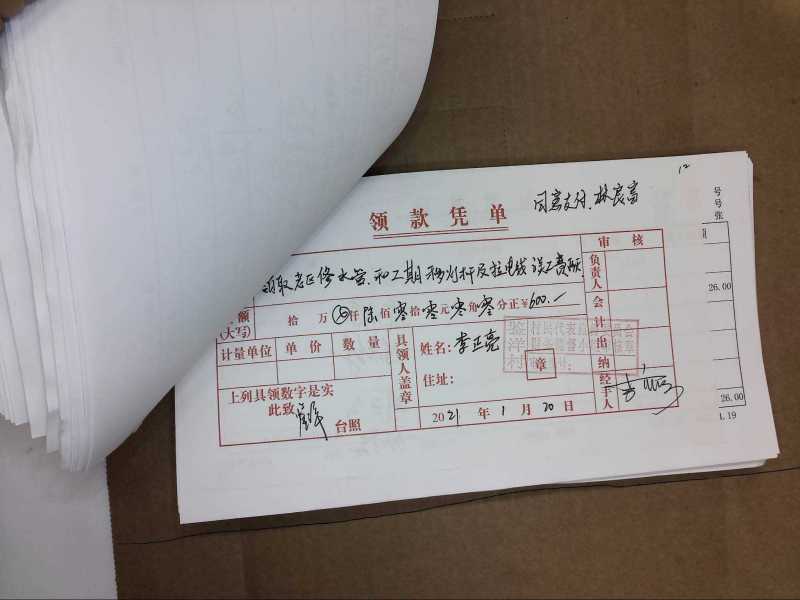 12
同意支付.林良富
领款凭单
号
号
张
领取老区修水管.和二期移灯杆及拉电线误工费
审核
负责人
额
(大写)
拾 万 仟 陆佰 零拾 零元 零角 零分正¥600.—
会计
26.00
计量单位 单价 数量
具领人盖章
姓名: 李正亮
住址:
章
出纳
上列具领数字是实
此致
台照
2021年1月20日
经手人
26.00
1.19